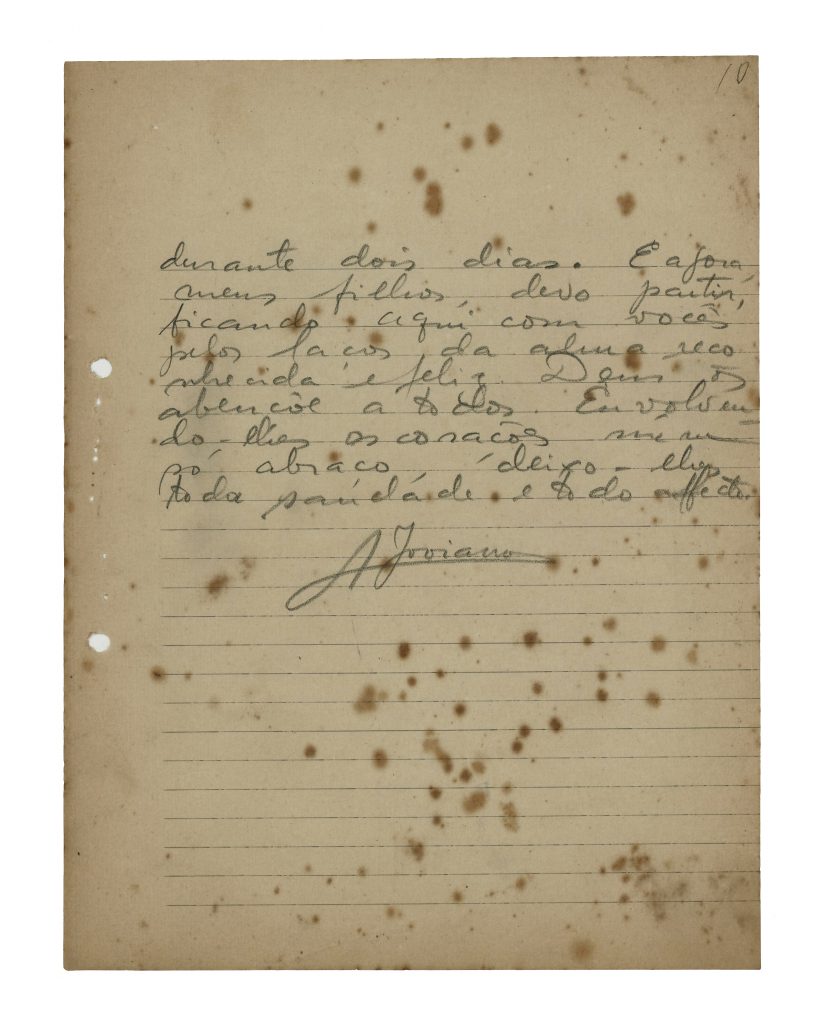 10
durante dois dias. E agora,
meus filhos, devo partir,
ficando aqui com vocês
pelos laços da alma reco
nhecida e feliz. Deus os
abençôe a todos. Envolven
do-lhes os corações num
só abraço, deixo-lhes
toda saudade e todo affecto.
A Joviano